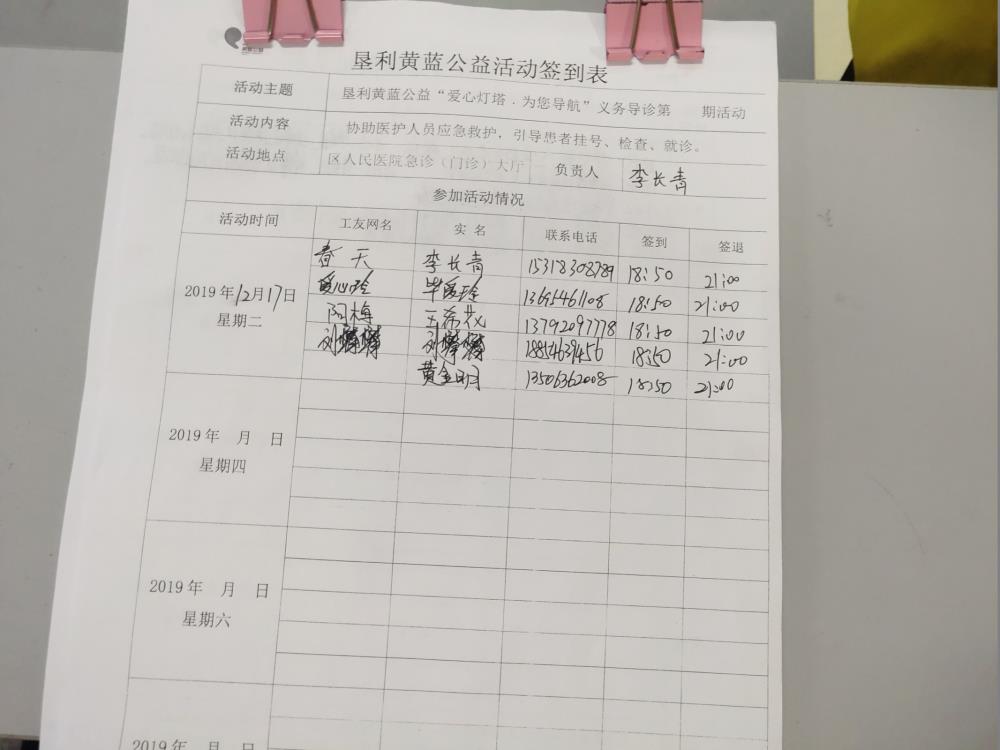 垦利黄蓝公益活动签到表
活动主题 垦利黄蓝公益“爱心灯塔．为您导航”义务导诊第 期活动
活动内容 协助医护人员应急救护，引导患者挂号、检查、就诊。
活动地点 区人民医院急诊（门诊）大厅 负责人 李长青
参加活动情况
活动时间 工友网名 实 名 联系电话 签到 签退
春天 李长青 15318308789 18:50 21:00
2019年12月17日 爱心玲 毕爱玲 13695461108 18:50 21:00
星期二 阿梅 王希花 13792097778 18:50 21:00
刘 刘 18854639456 18:50 21:00
黄金明 13506362008 18:50 21:00
2019年 月 日
星期四
2019年 月 日
星期六
2019年 月 日